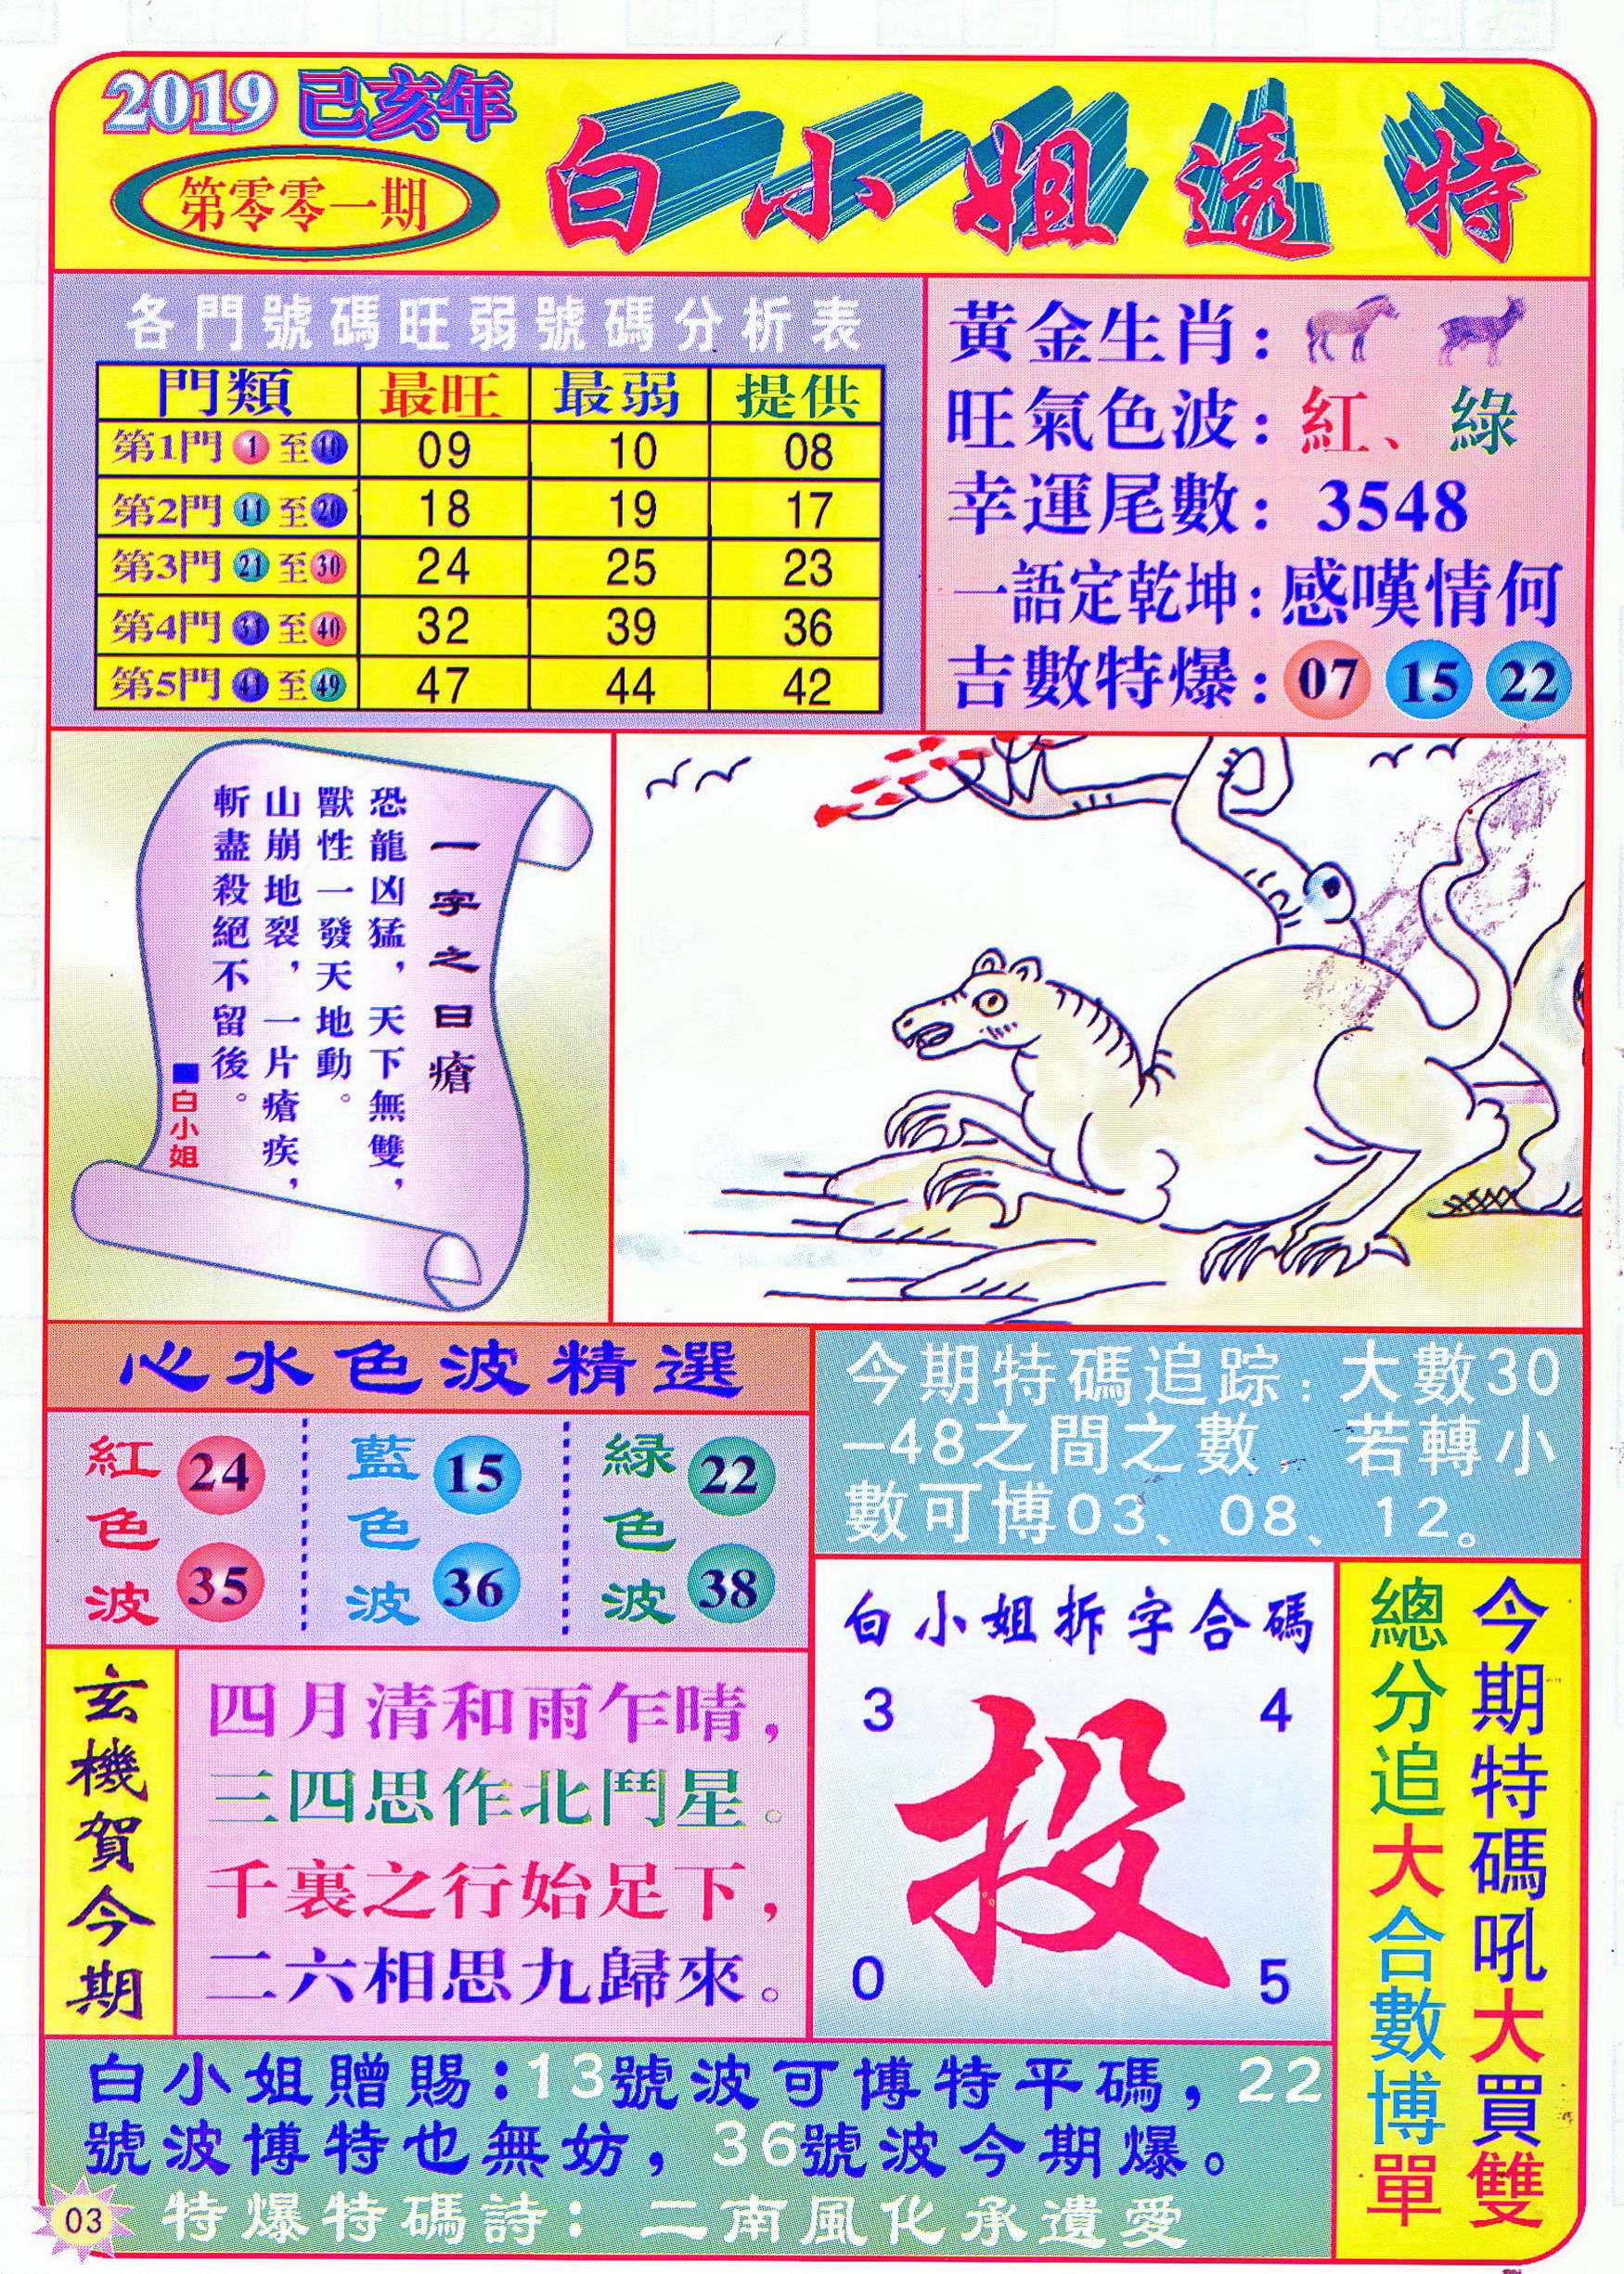 2019 己亥年
第零零一期
白小姐透特
各門號碼旺弱號碼分析表
門類 最旺 最弱 提供
第1門 1 至 10 09 10 08
第2門 11 至 20 18 19 17
第3門 21 至 30 24 25 23
第4門 31 至 40 32 39 36
第5門 41 至 49 47 44 42
黃金生肖：
旺氣色波：紅、綠
幸運尾數：3548
一語定乾坤：感嘆情何
吉數特爆：07 15 22
一字之曰瘡
恐龍凶猛，天下無雙，
獸性一發天地動。
山崩地裂，一片瘡疾，
斬盡殺絕不留後。
■白小姐
心水色波精選
紅色波 24 35
藍色波 15 36
緑色波 22 38
今期特碼追踪：大數30
—48之間之數，若轉小
數可博03、08、12。
玄機賀今期
四月清和雨乍晴，
三四思作北鬥星。
千裏之行始足下，
二六相思九歸來。
白小姐拆字合碼
3 4
投
0 5
今期特碼吼大買雙
總分追大合數博單
白小姐贈賜：13號波可博特平碼，22
號波博特也無妨，36號波今期爆。
特爆特碼詩：二南風化承遺愛
03